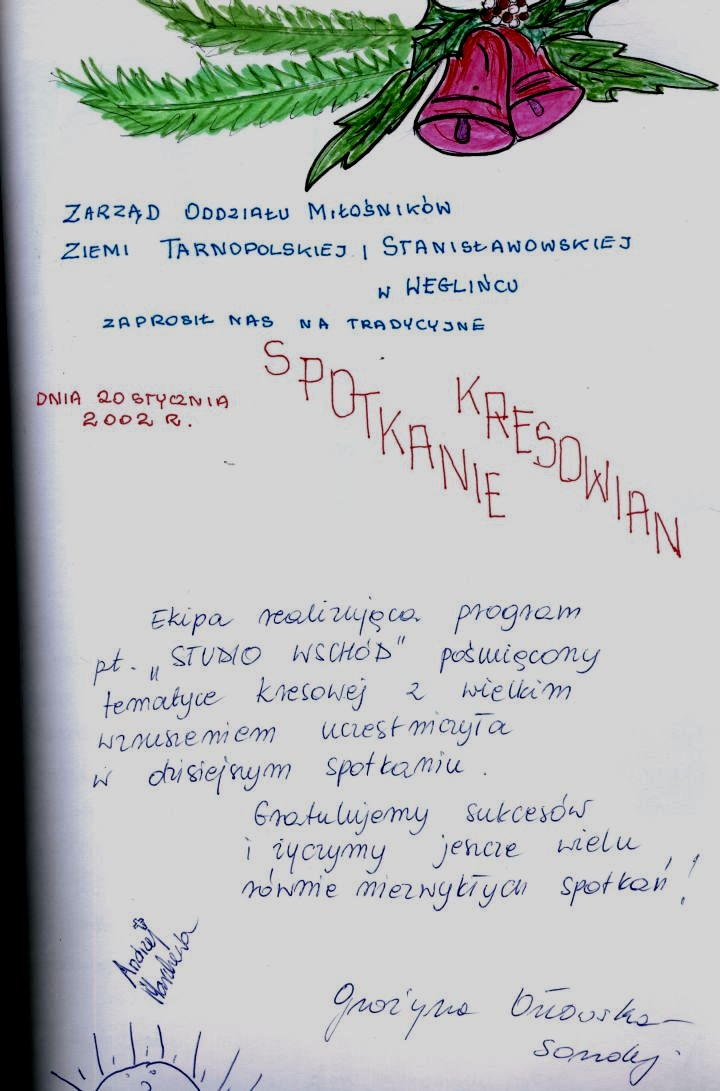 ZARZĄD ODDZIAŁU MIŁOŚNIKÓW
ZIEMI TARNOPOLSKIEJ I STANISŁAWOWSKIEJ
W WĘGLIŃCU
ZAPROSIŁ NAS NA TRADYCYJNE
SPOTKANIE KRESOWIAN
DNIA 20 STYCZNIA
2002 R.
Ekipa realizująca program
pt. „STUDIO WSCHÓD" poświęcony
tematyce kresowej z wielkim
wzruszeniem uczestniczyła
w dzisiejszym spotkaniu.
Gratulujemy sukcesów
i życzymy jeszcze wielu
równie niezwykłych spotkań!
Andrzej
Grażyna Orłowska-
Sondej